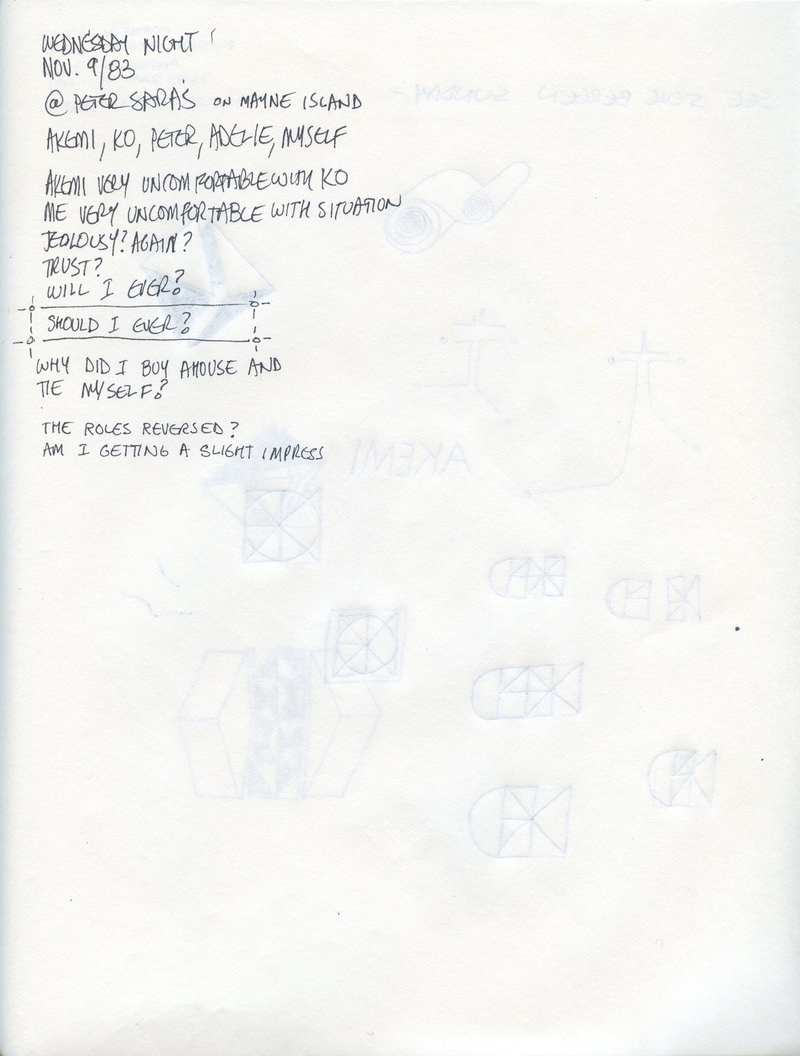 WEDNESDAY NIGHT!
NOV. 9/83
@ PETER SARA'S ON MAYNE ISLAND
AKEMI, KO, PETER, ADELIE, MYSELF
AKEMI VERY UNCOMFORTABLE WITH KO
ME VERY UNCOMFORTABLE WITH SITUATION
JEOLOUSY? AGAIN?
TRUST?
WILL I EVER?
SHOULD I EVER?
WHY DID I BUY A HOUSE AND
TIE MYSELF?
THE ROLES REVERSED?
AM I GETTING A SLIGHT IMPRESS
AKEMI